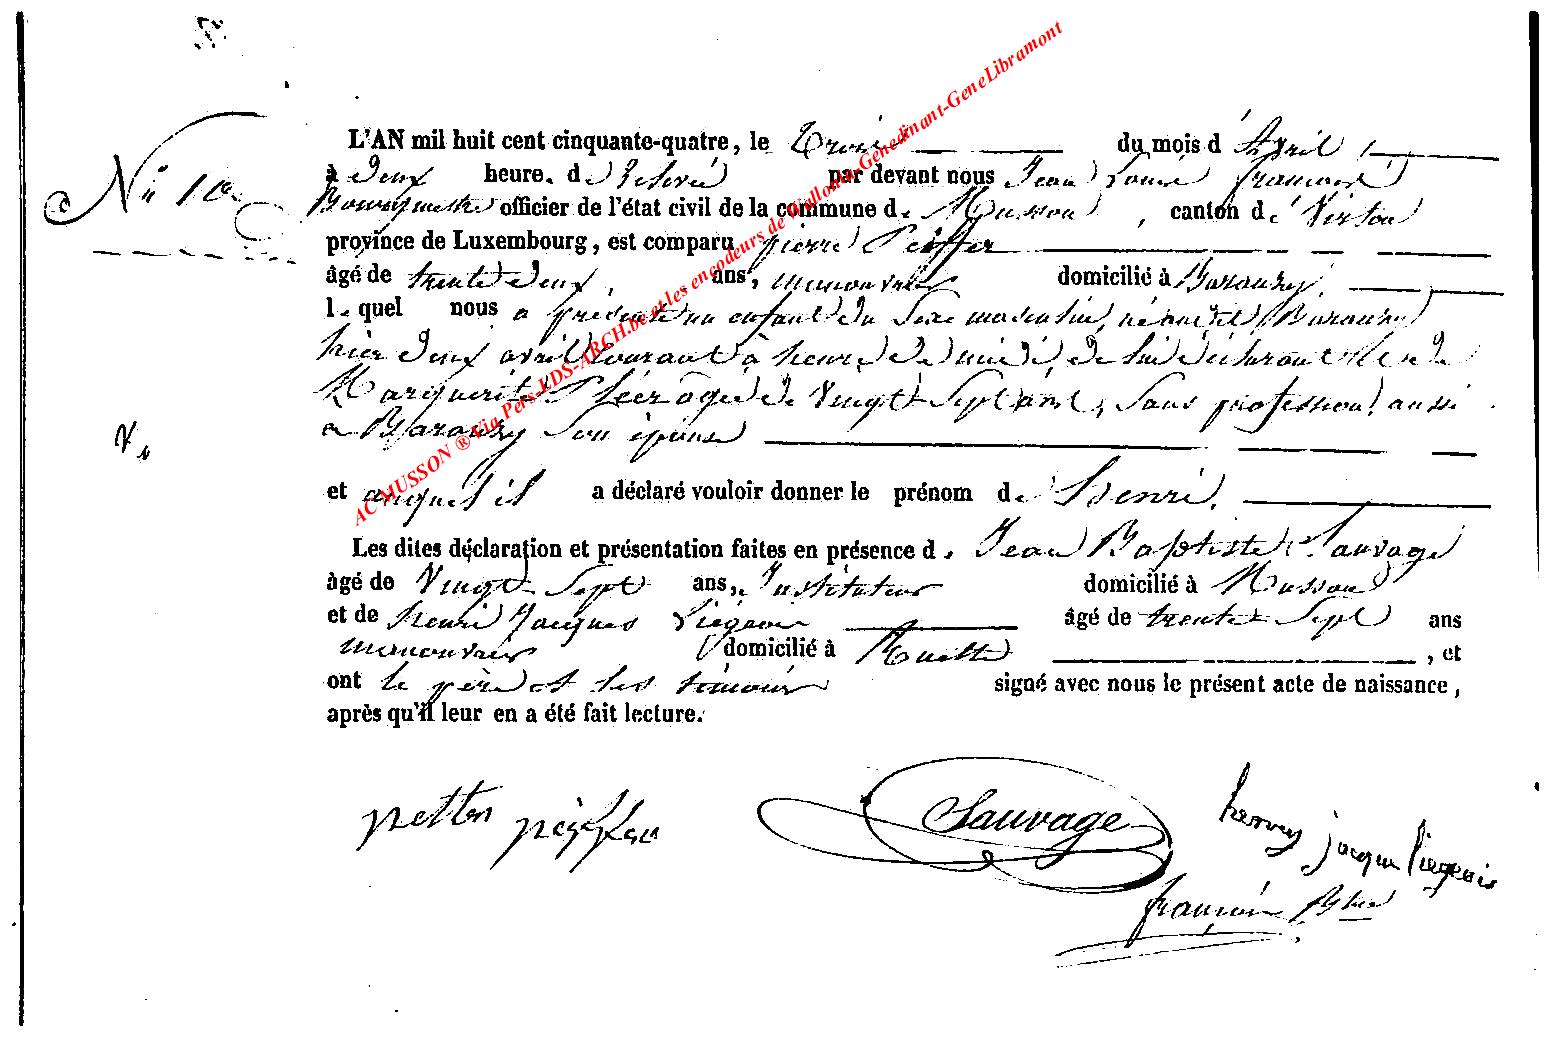 AC MUSSON ® Via Pers-EDS-ARCH.be et les encodeurs de Wallonia-Genedinant-GeneLibramont
L'AN mil huit cent cinquante-quatre, le Trois du mois d'Avril,
N° 10
à Deux heure. de Relevée par devant nous Jean Louis françois
Bourgmestre officier de l'état civil de la commune de Musson, canton de Virton
province de Luxembourg, est comparu pierre Peiffer
âgé de trente Deux, ans, manouvrier domicilié à Baranzy,
le quel nous a présenté un enfant du Sexe masculin, né audit Baranzy
hier Deux avril courant à heure de midi, de lui déclarant et de
Marguerite âgée de Vingt Sept ans, Sans profession, aussi
a Baranzy Son épouse
et auquel il a déclaré vouloir donner le prénom de Henri.
Les dites déclaration et présentation faites en présence de Jean Baptiste Sauvage
âgé de Vingt Sept ans, Instituteur domicilié à Musson
et de henri Jacques Liégeois âgé de trente Sept ans
manouvrier domicilié à Ruette, et
ont le père et les témoins signé avec nous le présent acte de naissance,
après qu'il leur en a été fait lecture.
Sauvage
henry jacque liegeois
françois Bmtre